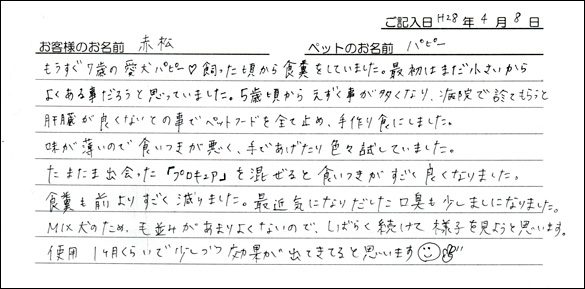 ご記入日 H28 年 4 月 8 日
お客様のお名前 赤松 ペットのお名前 パピー
もうすぐ7歳の愛犬パピー♡飼った頃から食糞をしていました。最初はまだ小さいから
よくある事だろうと思っていました。5歳頃からえずく事が多くなり、病院で診てもらうと
肝臓が良くないとの事でペットフードを全て止め、手作り食にしました。
味が薄いので食いつきが悪く、手であげたり色々試していました。
たまたま出会った「プロキュア」を混ぜると食いつきがすごく良くなりました。
食糞も前よりすごく減りました。最近気になりだした口臭も少しましになりました。
MIX犬のため、毛並みがあまりよくないので、しばらく続けて様子を見ようと思います。
使用1ヶ月くらいで少しづつ効果が出てきてると思います